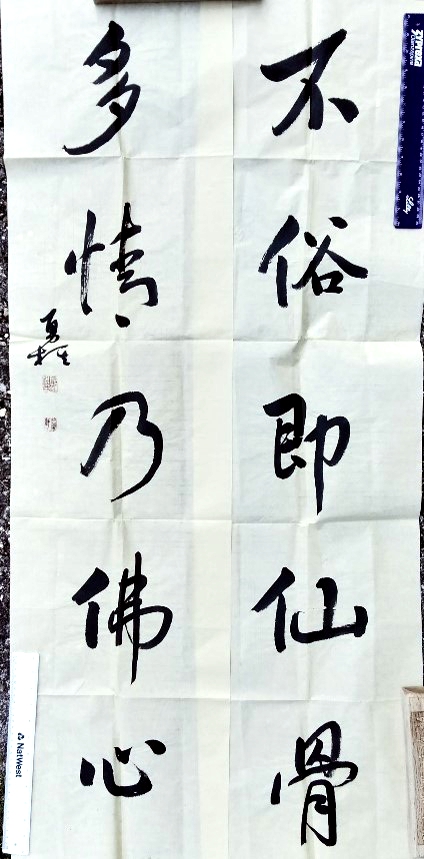 不俗即仙骨
多情乃佛心
NatWest